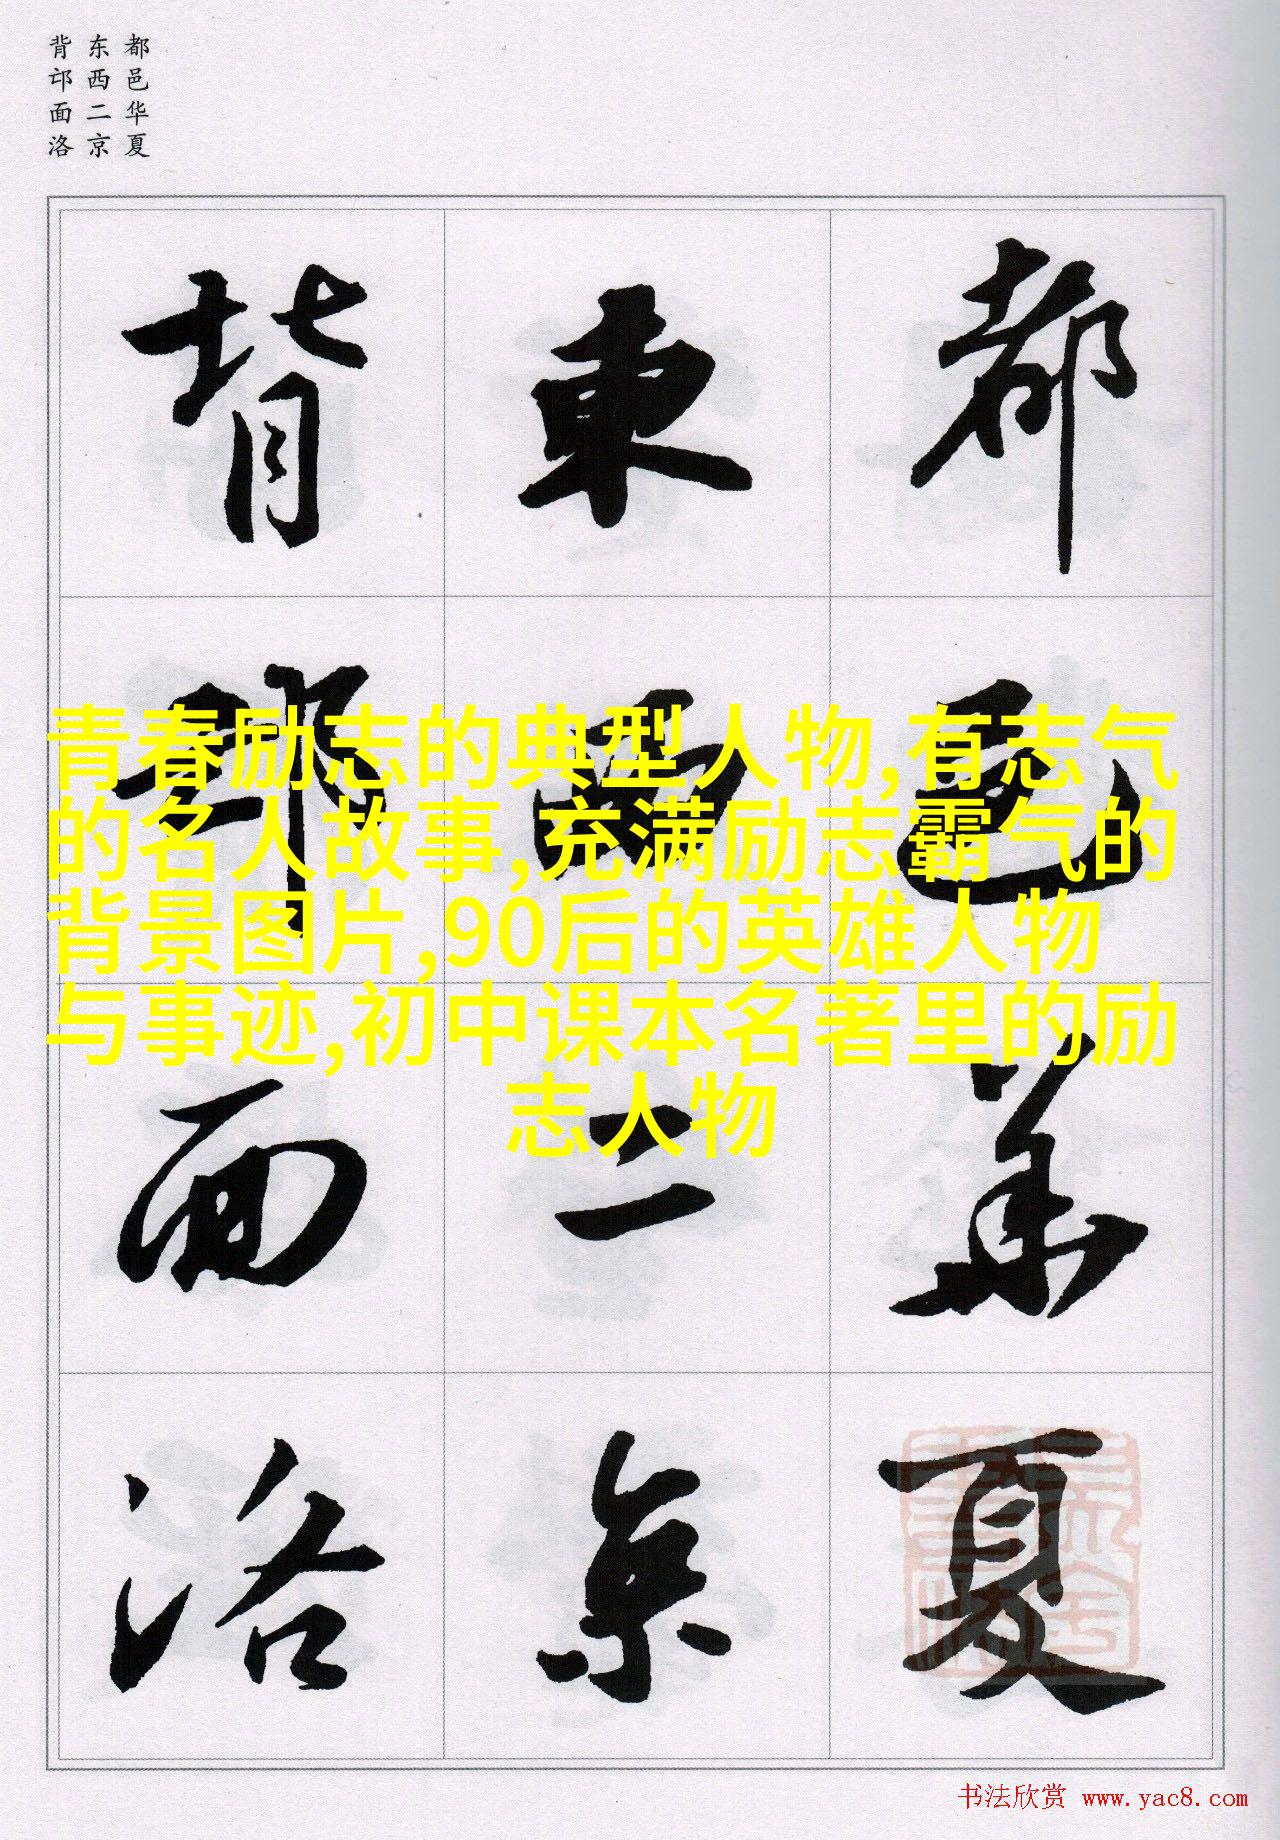 都邑华夏
东西二京
背邙面洛
都邑華夏
東西二京
背邙面洛
青春励志的典型人物,有志气
的名人故事,充满励志霸气的
背景图片,90后的英雄人物
与事迹,初中课本名著里的励
志人物
书法欣赏 www.yac8.com